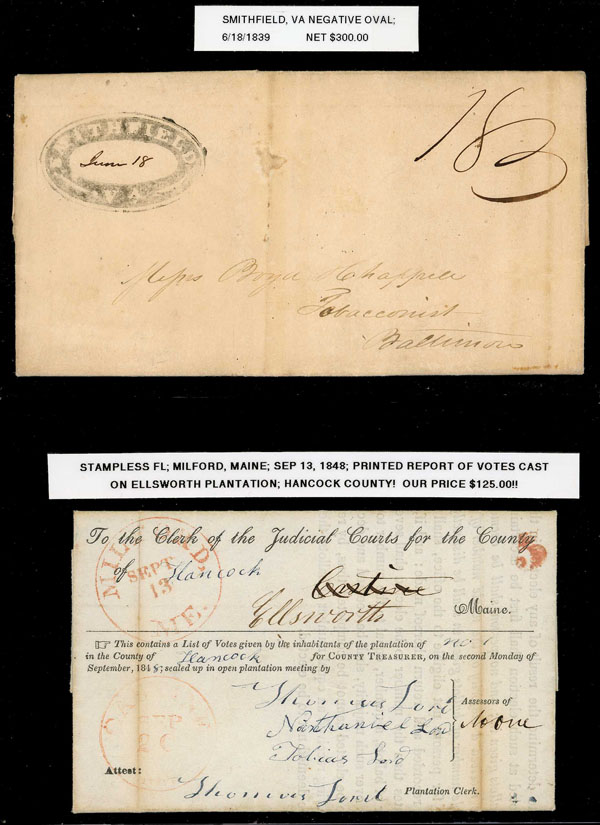 SMITHFIELD, VA NEGATIVE OVAL;
6/18/1839 NET $300.00
SMITHFIELD
VA
June 18
18¾
Messrs Boyd & Chappell
Tobacconist
Baltimore
STAMPLESS FL; MILFORD, MAINE; SEP 13, 1848; PRINTED REPORT OF VOTES CAST
ON ELLSWORTH PLANTATION; HANCOCK COUNTY! OUR PRICE $125.00!!
To the Clerk of the Judicial Courts for the County
of Hancock
MILFORD,
SEPT
13
ME.
5
Castine
Ellsworth Maine.
☞ This contains a List of Votes given by the inhabitants of the plantation of No 1
in the County of Hancock for COUNTY TREASURER, on the second Monday of
September, 1848; sealed up in open plantation meeting by
Thomas Lord
Nathaniel Lord
Tobias Lord
Assessors of
SEP
Attest:
Thomas Lord Plantation Clerk.